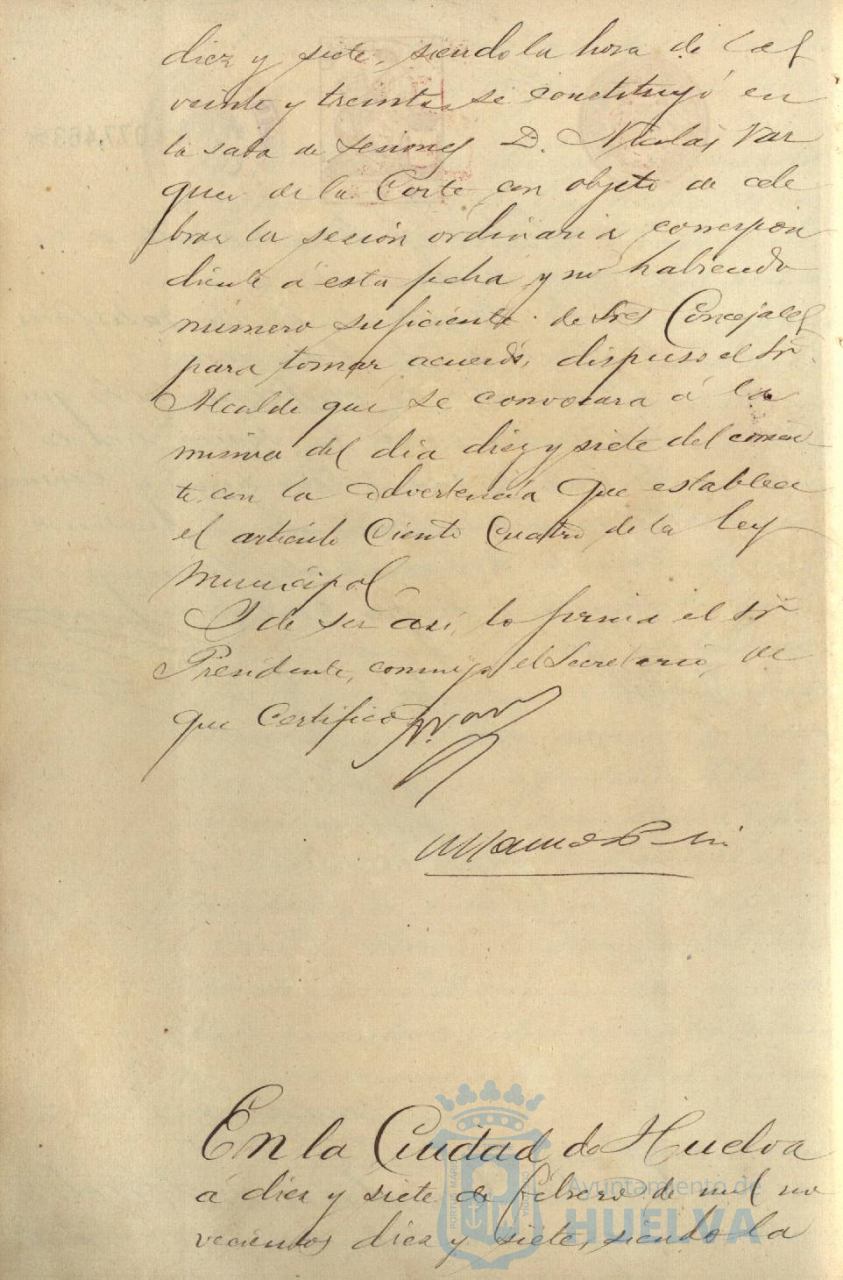 diez y siete, siendo la hora de las
veinte y treinta, se constituyó en
la sala de sesiones D. Nicolas Vaz
quez de la Corte con objeto de cele
brar la sesión ordinaria correspon
diente á esta fecha y no habiendo
número suficiente de Sres Concejales
para tomar acuerdo, dispuso el Sr.
Alcalde que se convocara á la
misma del dia diez y siete del corrien
te, con la advertencia que establece
el articulo Ciento Cuatro de la ley
Municipal
Y de ser así, lo firma el Sr
Presidente, conmigo el Secretario, de
que Certifico
En la Ciudad de Huelva
á diez y siete de febrero de mil no
vecientos diez y siete, siendo la
Ayuntamiento de
HUELVA